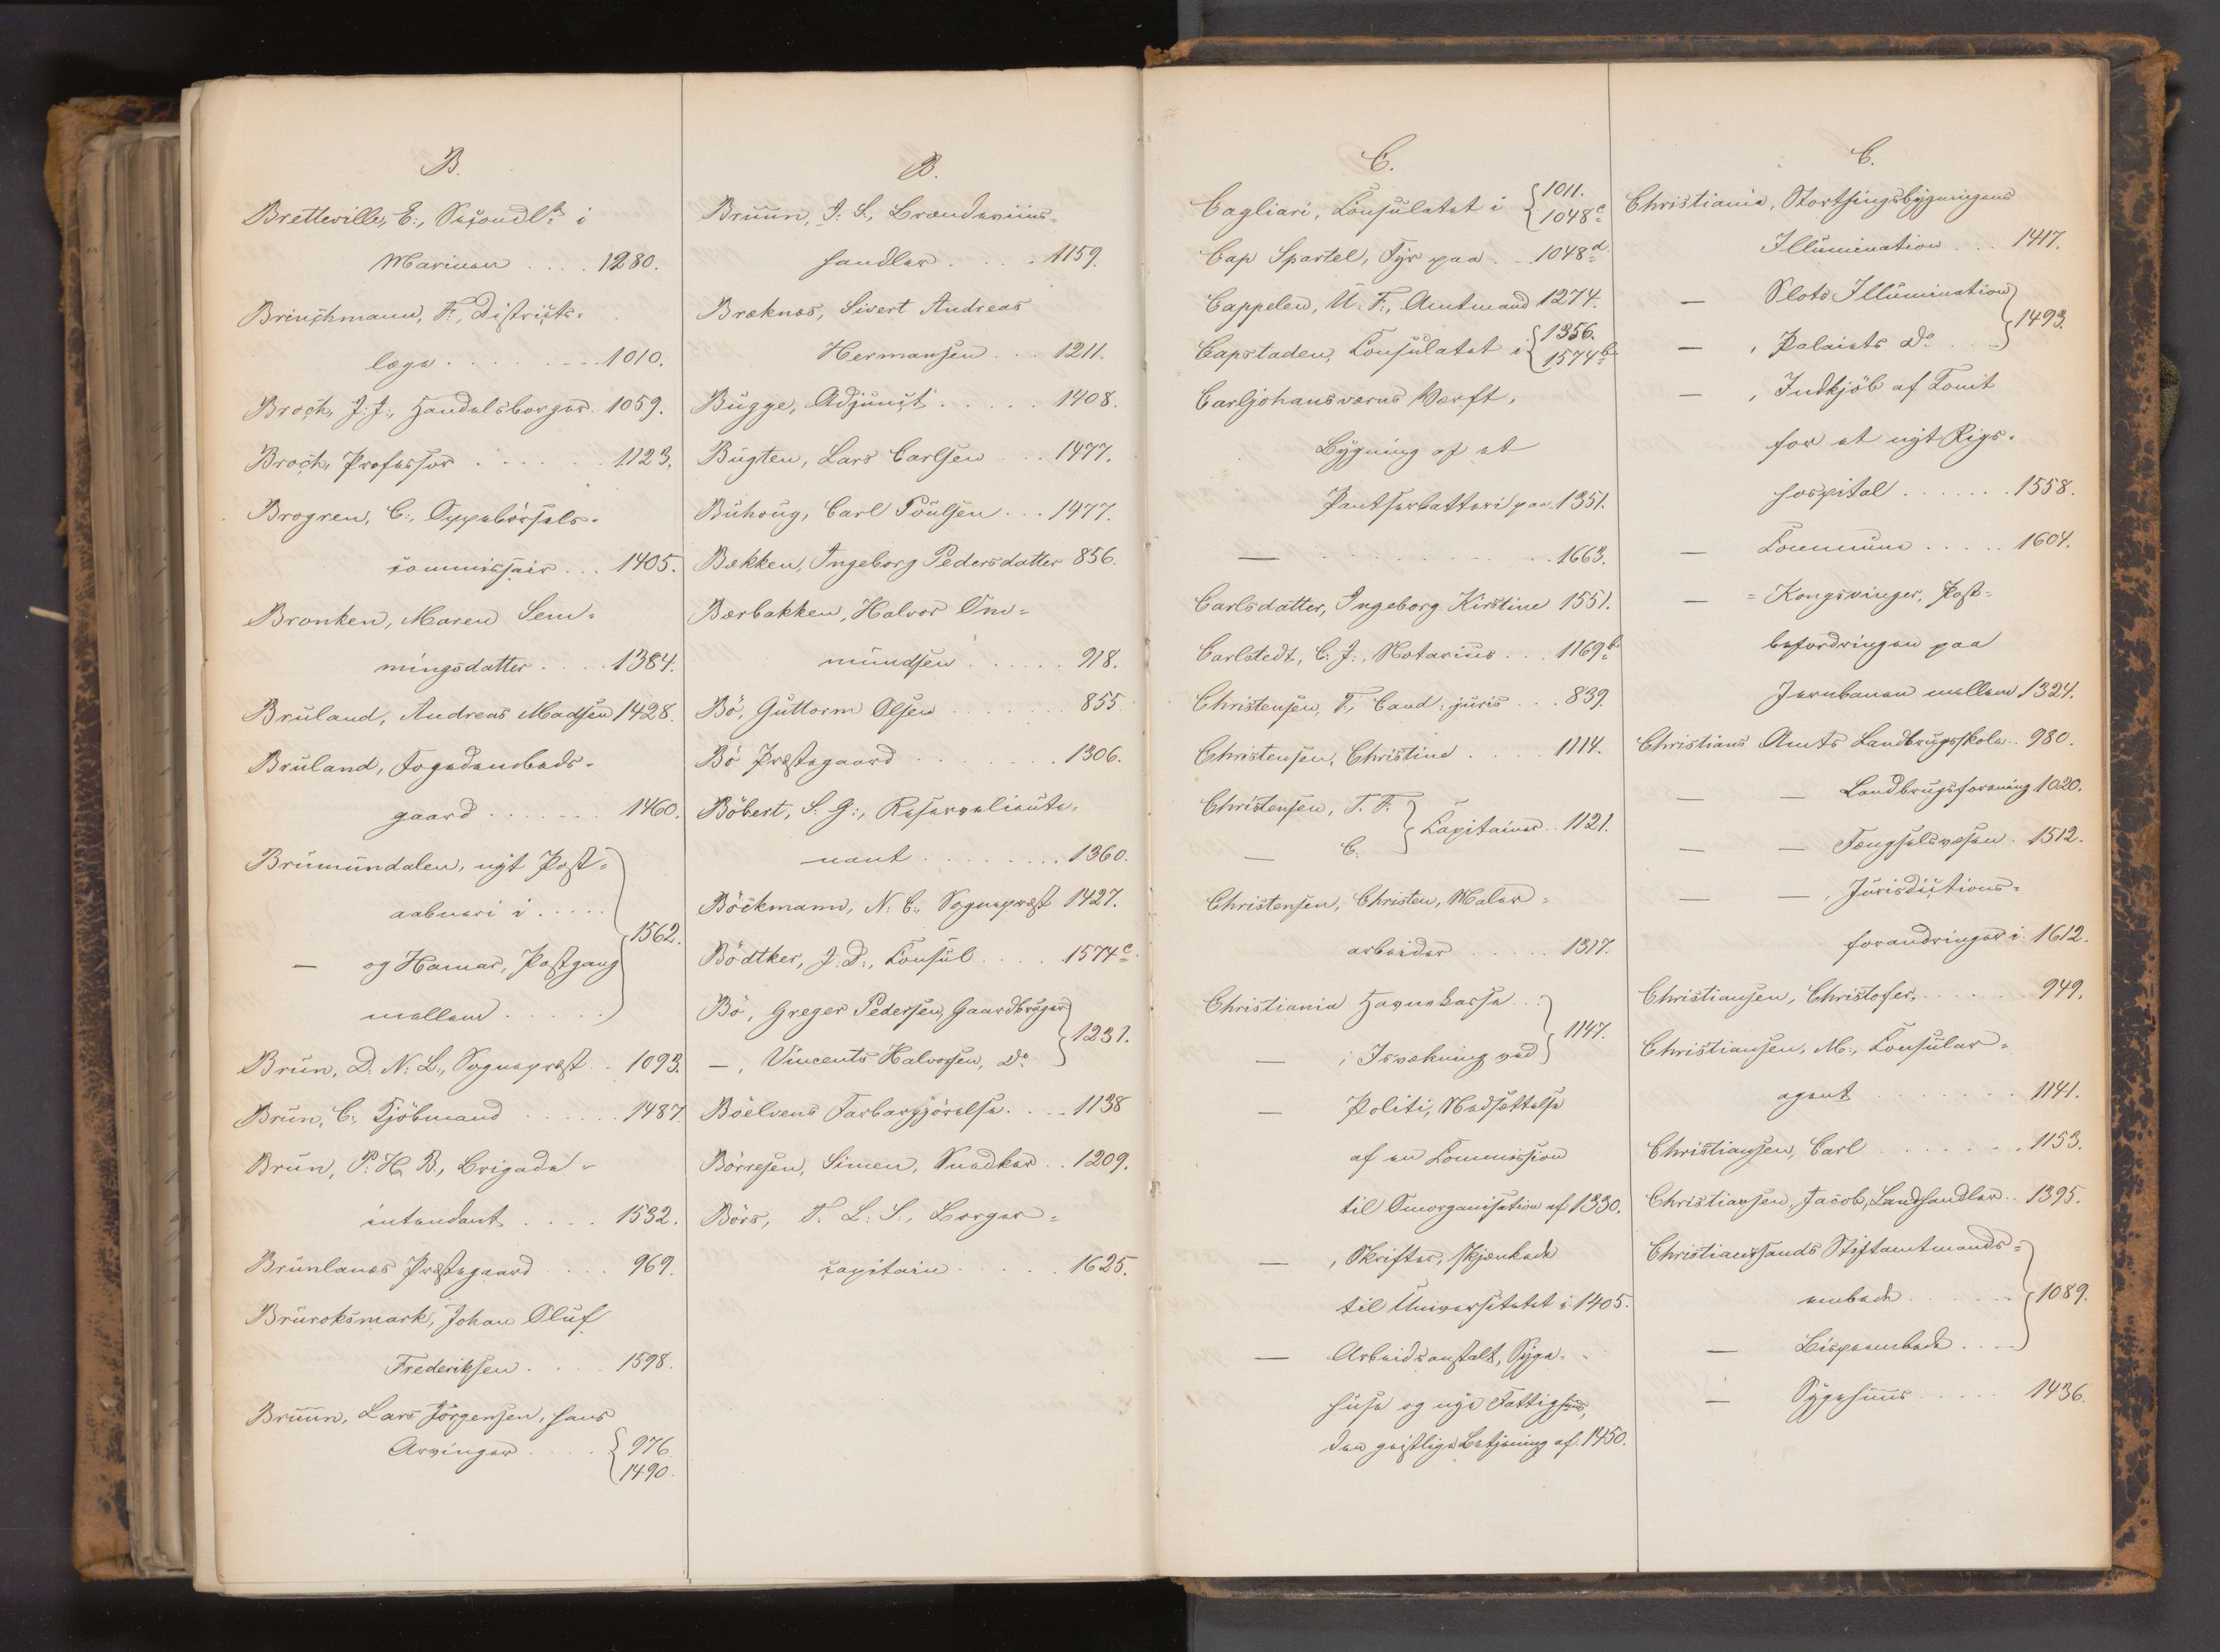 B.
Bretteville, E:, Secondlt i
Marinen .... 1280.
Brinchmann, F:, Districts-
læge ....... 1010.
Broch, J: J:, Handelsborger. 1059.
Broch, Professor ...... 1123.
Brogren, C:, Oppebörsels-
commissair ... 1405.
Bronken, Maren Lem-
mingsdatter .... 1384.
Bruland, Andreas Madsen 1428.
Bruland, Fogedembeds-
gaard ....... 1460.
Brumundalen, nyt Post-
aabneri i .....
— og Hamar, Postgang
mellem .....
1562.
Brun, D: N: L:, Sognepræst .. 1093.
Brun, C:, Kjöbmand ...... 1487.
Brun, P: H: B:, Brigade-
intendant .... 1532.
Brunlanæs Præstegaard .... 969.
Bruroksmark, Johan Oluf
Frederiksen .... 1598.
Bruun, Lars Jörgensen, hans
Arvinger .... { 976.
1490.
B.
Bruun, J: S:, Brændeviins-
handler .... 1159.
Bræknæs, Sivert Andreas
Hermansen ... 1211.
Bugge, Adjunct ..... 1408.
Bugten, Lars Carlsen ... 1477.
Buhoug, Carl Poulsen ... 1477.
Bækken, Ingeborg Pedersdatter 856.
Bærbakken, Halvor Om-
mundsen ..... 918.
Bö, Guttorm Olsen ...... 855.
Bö Præstegaard ........ 1306.
Böbert, S: G:, Reservelieute-
nant ........ 1360.
Böckmann, N: C:, Sognepræst 1427.
Bödtker, J: D:, Consul .... 1574c.
Bö, Greger Pedersen, Gaardbruger
—, Vincents Halvorsen, Do
1231.
Böelvens Farbargjörelse .... 1138
Börresen, Simen, Snedker .. 1209.
Börs, T: L: S:, Borger-
capitain ..... 1625.
C.
Cagliari, Consulatet i { 1011.
1048c
Cap Spartel, Fyr paa .. 1048d
Cappelen, U: F:, Amtmand 1274.
Capstaden, Consulatet i { 1356.
1574b
Carljohansværns Værft,
Bygning af et
Pantserbatteri paa 1351.
— ........... 1663.
Carlsdatter, Ingeborg Kirstine 1551.
Carlstedt, C: J:, Notarius ... 1169b
Christensen, F:, Cand: juris ... 839.
Christensen, Christine .... 1114.
Christensen, T. F.
— C.
Capitainer .. 1121.
Christensen, Christen, Maler-
arbeider ..... 1317.
Christiania Havnekasse ..
— , Isvækning ved
1147.
— Politi, Nedsættelse
af en Commission
til Omorganisation af 1330.
— , Skrifter, skjænkede
til Universitetet i 1405.
— Arbeidsanstalt, Syge-
huse og nye Fattighuus,
den geistlige Betjening af 1450.
C.
Christiania, Storthingsbygningens
Illumination ... 1417.
— Slots Illumination
— , Palaiets Do ..
1493.
— , Indkjöb af Tomt
for et nyt Rigs-
hospital ...... 1558.
— Commune ..... 1604.
— = Kongsvinger, Post-
befordringen paa
Jernbanen mellem 1324.
Christians Amts Landbrugsskole .. 980.
— — Landbrugsforening 1020.
— — Fængselsvæsen . 1512.
— — , Jurisdictions-
forandringer i 1612.
Christiansen, Christofer, ...... 949.
Christiansen, M:, Consular-
agent ....... 1141.
Christiansen, Carl ....... 1153.
Christiansen, Jacob, Landhandler .. 1395.
Christianssands Stiftamtmands-
embede ......
— Bispeembede ....
1089.
— Sygehuus ..... 1436.